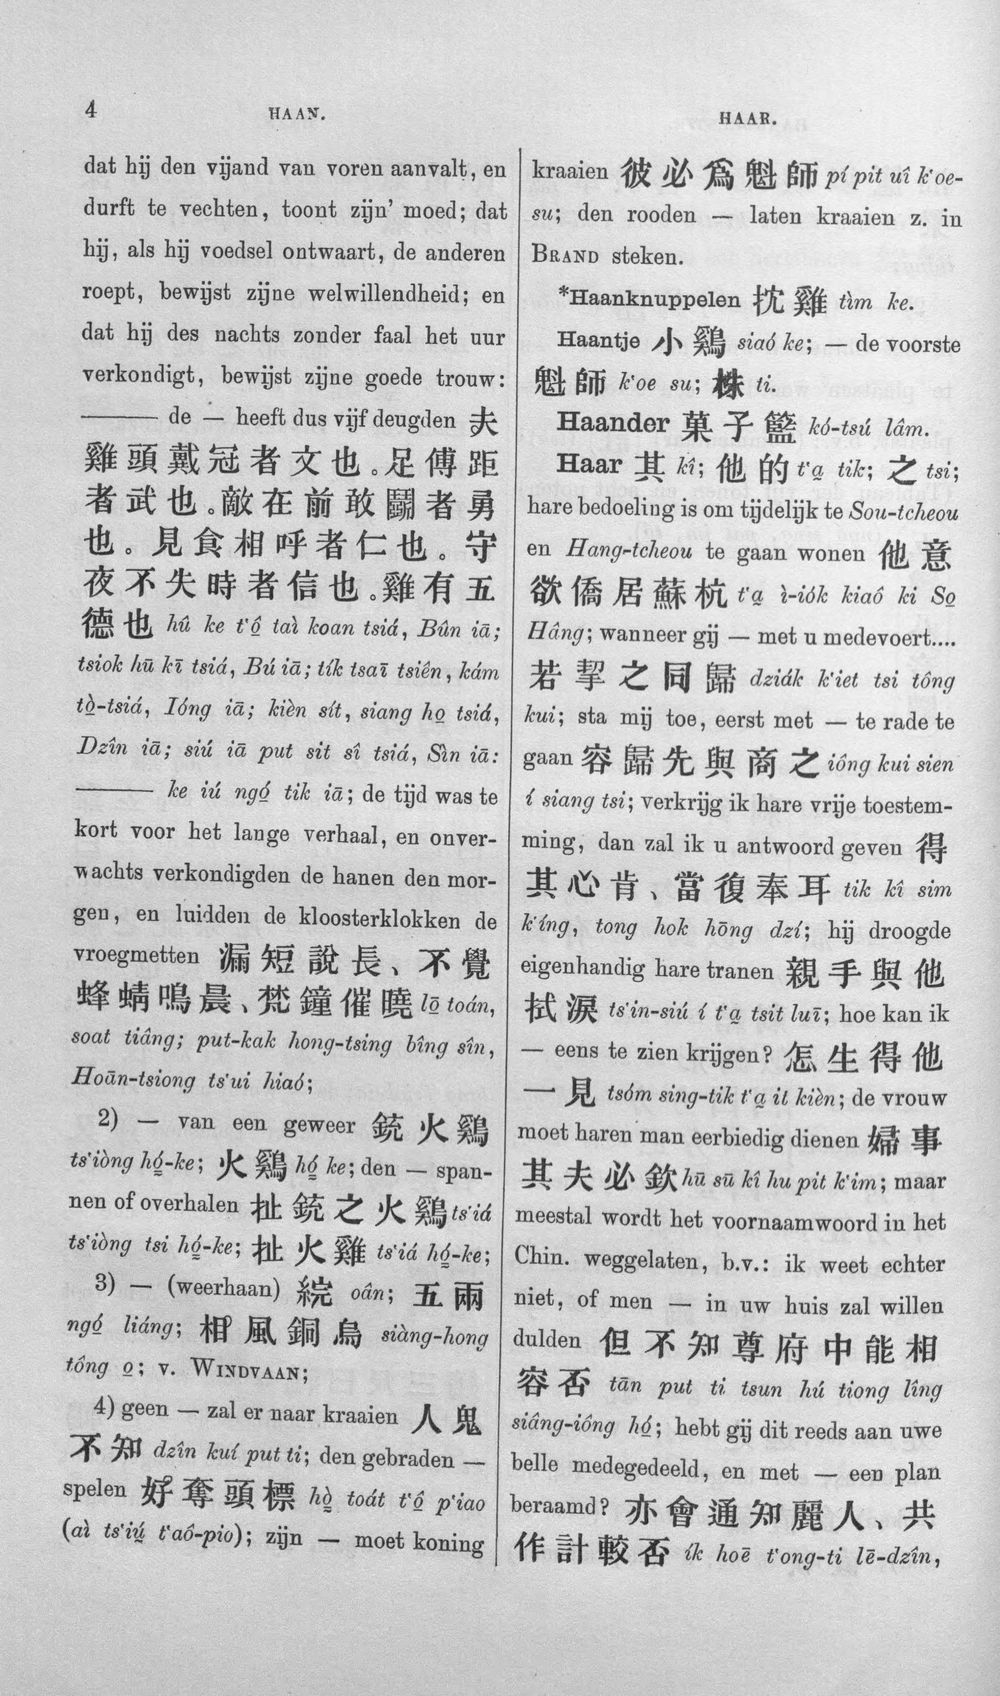 4
HAAN.
HAAR.
dat hij den vijand van voren aanvalt, en
durft te vechten, toont zijn' moed; dat
hij, als hij voedsel ontwaart, de anderen
roept, bewijst zijne welwillendheid; en
dat hij des nachts zonder faal het uur
verkondigt, bewijst zijne goede trouw:
——— de — heeft dus vijf deugden 夫
雞頭戴冠者文也。足傅距
者武也。敵在前敢鬭者勇
也。見食相呼者仁也。守
夜不失時者信也。雞有五
德也 hû ke t'ô͘ taì koan tsiá, Bûn iā;
tsiok hū kī tsiá, Bú iā; tík tsaī tsiên, kám
tò̤-tsiá, Ióng iā; kièn sít, siang ho̤ tsiá,
Dzîn iā; siú iā put sit sî tsiá, Sìn iā:
——— ke iú ngó̤ tik iā; de tijd was te
kort voor het lange verhaal, en onver-
wachts verkondigden de hanen den mor-
gen, en luidden de kloosterklokken de
vroegmetten 漏短說長、不覺
蜂蜻鳴晨、梵鐘催曉 lō̤ toán,
soat tiâng; put-kak hong-tsing bîng sîn,
Hoān-tsiong ts'ui hiaó;
2) — van een geweer 銃火鷄
ts'iòng hó̤-ke; 火鷄 hó̤ ke; den — span-
nen of overhalen 扯銃之火鷄 ts'iá
ts'iòng tsi hó̤-ke; 扯火雞 ts'iá hó̤-ke;
3) — (weerhaan) 綄 oân; 五兩
ngó̤ liáng; 相風銅烏 siàng-hong
tông o̤; v. WINDVAAN;
4) geen — zal er naar kraaien 人鬼
不知 dzîn kuí put ti; den gebraden —
spelen 好奪頭標 hò̤ toát t'ô̤ p'iao
(aì ts'iṳ́ t'aô-pio); zijn — moet koning
kraaien 彼必爲魁師 pí pit uî k'oe-
su; den rooden — laten kraaien z. in
BRAND steken.
*Haanknuppelen 抌雞 tìm ke.
Haantje 小鷄 siaó ke; — de voorste
魁師 k'oe su; 株 ti.
Haander 菓子籃 kó-tsú lâm.
Haar 其 kî; 他的 t'a̤ tik; 之 tsi;
hare bedoeling is om tijdelijk te Sou-tcheou
en Hang-tcheou te gaan wonen 他意
欲僑居蘇杭 t'a̤ ì-iók kiaô ki So̤
Hâng; wanneer gij — met u medevoert....
若挈之同歸 dziák k'iet tsi tông
kui; sta mij toe, eerst met — te rade te
gaan 容歸先與商之 iông kui sien
í siang tsi; verkrijg ik hare vrije toestem-
ming, dan zal ik u antwoord geven 得
其心肯、當復奉耳 tik kî sim
k'íng, tong hok hōng dzí; hij droogde
eigenhandig hare tranen 親手與他
拭淚 ts'in-siú í t'a̤ tsit luī; hoe kan ik
— eens te zien krijgen? 怎生得他
一見 tsóm sing-tik t'a̤ it kièn; de vrouw
moet haren man eerbiedig dienen 婦事
其夫必欽 hū sū kî hu pit k'im; maar
meestal wordt het voornaamwoord in het
Chin. weggelaten, b.v.: ik weet echter
niet, of men — in uw huis zal willen
dulden 但不知尊府中能相
容否 tān put ti tsun hú tiong lîng
siâng-iông hó̤; hebt gij dit reeds aan uwe
belle medegedeeld, en met — een plan
beraamd? 亦會通知麗人、共
作計較否 ík hoē t'ong-ti lē-dzîn,